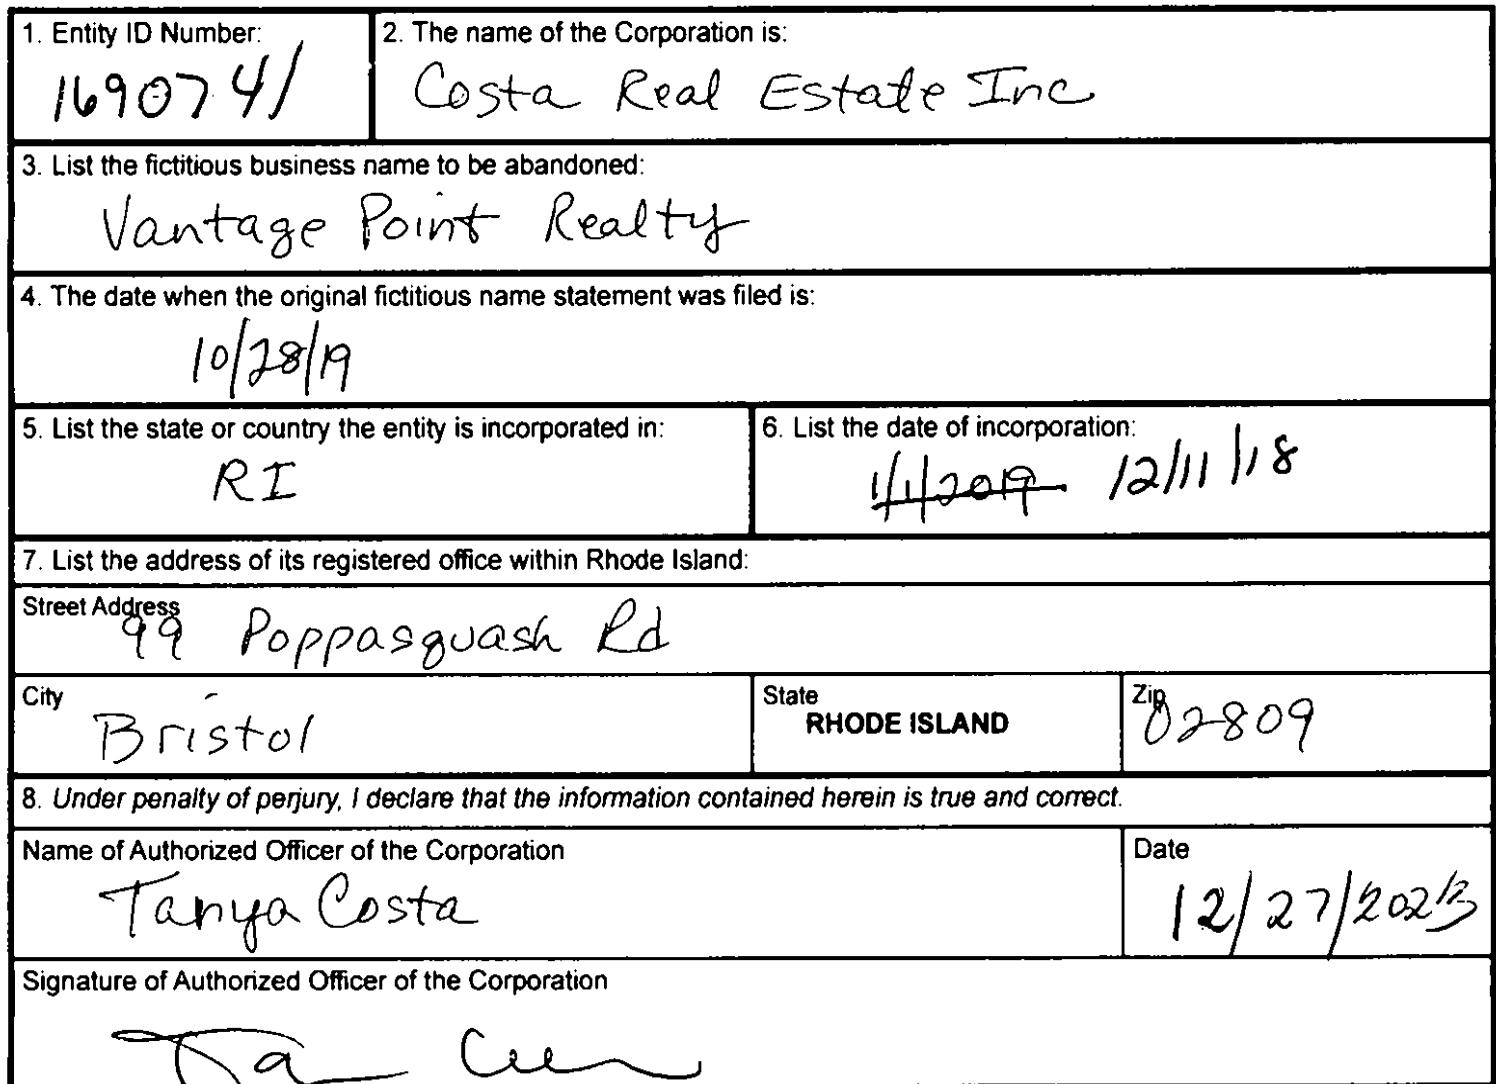 1. Entity ID Number:
1690741
2. The name of the Corporation is:
Costa Real Estate Inc
3. List the fictitious business name to be abandoned:
Vantage Point Realty
4. The date when the original fictitious name statement was filed is:
10/28/19
5. List the state or country the entity is incorporated in:
RI
6. List the date of incorporation:
1/1/2019 12/11/18
7. List the address of its registered office within Rhode Island:
Street Address
99 Poppasquash Rd
City
Bristol
State
RHODE ISLAND
Zip
02809
8. Under penalty of perjury, I declare that the information contained herein is true and correct.
Name of Authorized Officer of the Corporation
Tanya Costa
Date
12/27/2023
Signature of Authorized Officer of the Corporation